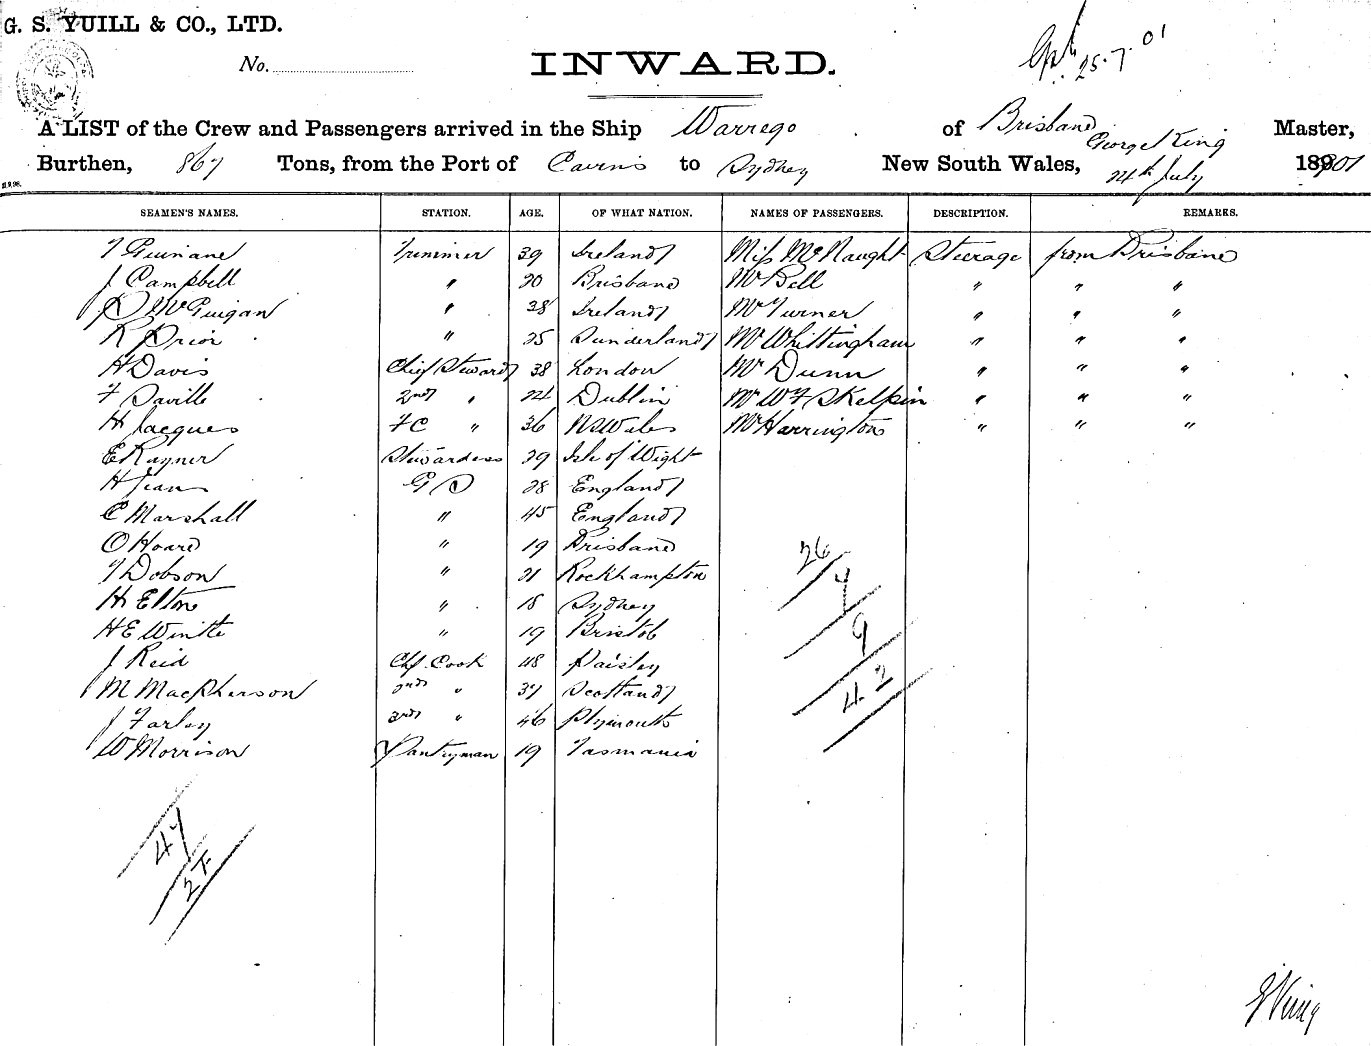 G. S. YUILL & CO., LTD.
No.
INWARD.
25.7.01
A LIST of the Crew and Passengers arrived in the Ship Warrego of Brisbane George King Master,
Burthen, 867 Tons, from the Port of Cairns to Sydney New South Wales, 24th July 1901
SEAMEN'S NAMES. STATION. AGE. OF WHAT NATION. NAMES OF PASSENGERS. DESCRIPTION. REMARKS.
T Guinane Trimmer 39 Ireland Miss McNaught Steerage from Brisbane
J Campbell " 20 Brisbane Mr Bell " " "
D McGuigan " 38 Ireland Mr Turner " " "
R Prior " 25 Sunderland Mr Whittingham " " "
H Davis Chief Steward 38 London Mr Dunn " " "
F Saville 2nd " 24 Dublin Mr W F Skelpin " " "
H Jacques FC " 36 N S Wales Mr Harrington " " "
E Rayner Stewardess 29 Isle of Wight
H Jean G S 28 England
C Marshall " 45 England
O Hoare " 19 Brisbane
T Dobson " 21 Rockhampton
H Elton " 18 Sydney
H E Wintle " 19 Bristol
J Reid Chf. Cook 48 Paisley
M MacPherson 2nd " 37 Scotland
J Farley 3rd " 46 Plymouth
W Morrison Pantryman 19 Tasmania
26
7
9
42
47
27
G King